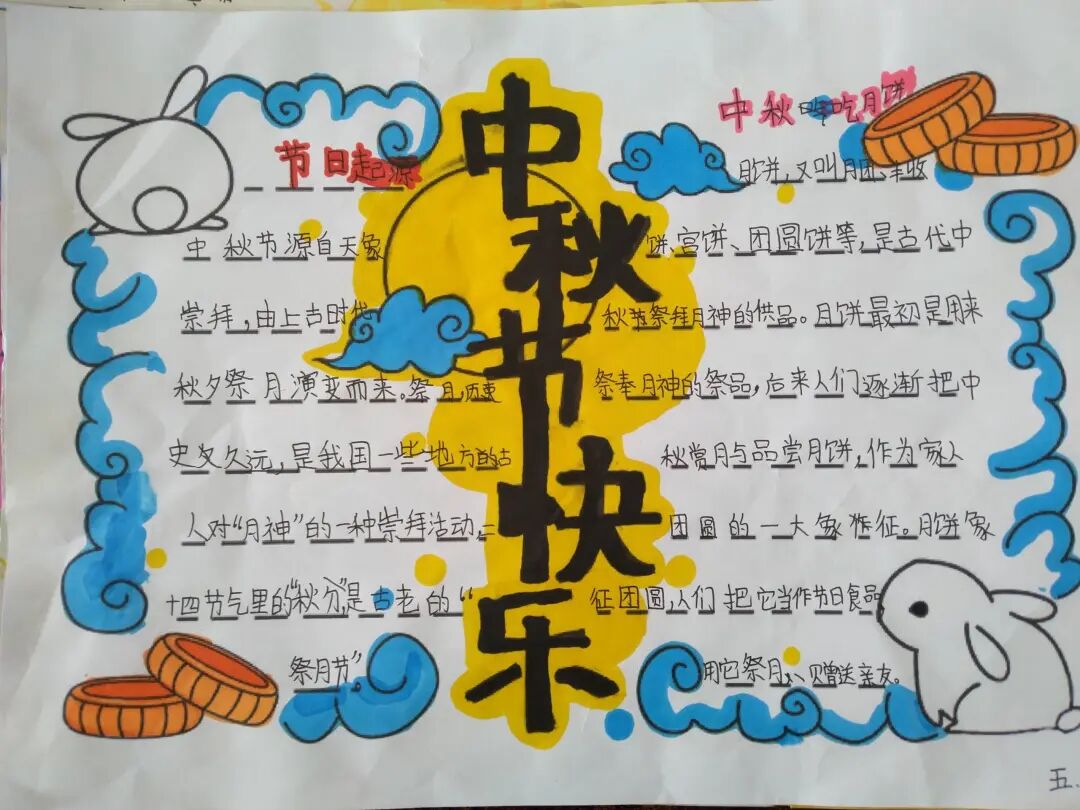 中秋节快乐
节日起源
中秋节源自天象
崇拜,由上古时代
秋夕祭月演变而来。祭月,历史
史文久远,是我国一些地方的古
人对“月神”的一种崇拜活动,二
十四节气里的“秋分”,是古老的“
祭月节”
中秋 吃月饼
月饼,又叫月团、丰收
饼、宫饼、团圆饼等,是古代中
秋节祭拜月神的供品。月饼最初是用来
祭奉月神的祭品,后来人们逐渐把中
秋赏月与品尝月饼,作为家人
团圆的一大象征。月饼象
征团圆,人们把它当作节日食品
用它祭月、赠送亲友。
五